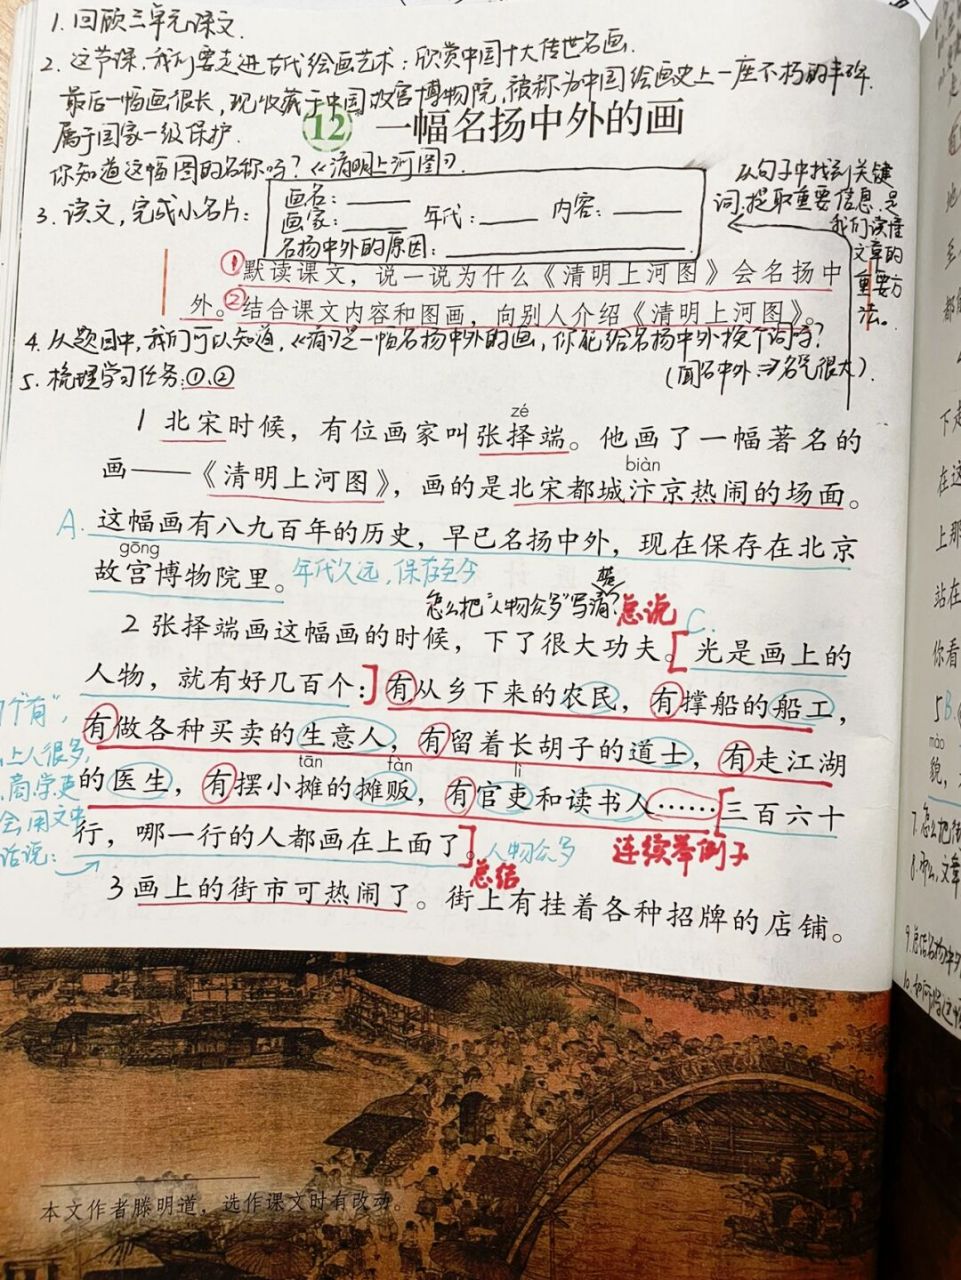 1. 回顾三单元课文.
2. 这节课,我们要走进古代绘画艺术:欣赏中国十大传世名画.
最后一幅画很长,现收藏于中国故宫博物院,被称为中国绘画史上一座不朽的丰碑.
属于国家一级保护.
12 一幅名扬中外的画
你知道这幅图的名称吗?《清明上河图》.
3. 读文,完成小名片:
画名: 
画家: 年代: 内容:
名扬中外的原因:
从句子中找到关键
词,提取重要信息,是
我们读懂
文章的
重要方
法。
①默读课文,说一说为什么《清明上河图》会名扬中
外。②结合课文内容和图画,向别人介绍《清明上河图》。
4. 从题目中,我们可以知道,《清》是一幅名扬中外的画,你能给名扬中外换个词吗?
(闻名中外⇒名气很大).
5. 梳理学习任务:①、②
zé
1 北宋时候,有位画家叫张择端。他画了一幅著名的
biàn
画——《清明上河图》,画的是北宋都城汴京热闹的场面。
A. 这幅画有八九百年的历史,早已名扬中外,现在保存在北京
gōng
故宫博物院里。 年代久远,保存至今
怎么把“人物众多”写清楚? 总说
2 张择端画这幅画的时候,下了很大功夫。[光是画上的 C.
人物,就有好几百个:]有从乡下来的农民,有撑船的船工,
有做各种买卖的生意人,有留着长胡子的道士,有走江湖
tān fàn lì
的医生,有摆小摊的摊贩,有官吏和读书人……[三百六十
行,哪一行的人都画在上面了]。 人物众多 连续举例子
总结
3 画上的街市可热闹了。街上有挂着各种招牌的店铺。
个“有”,
上人很多,
商学吏
会用文中
话说:
本文作者滕明道,选作课文时有改动。
下
在这
上那
站在
你看
5B.
mào
貌,
7. 怎么把街
8. 那么,文章
9. 总结名扬中外
10. 如何将这幅